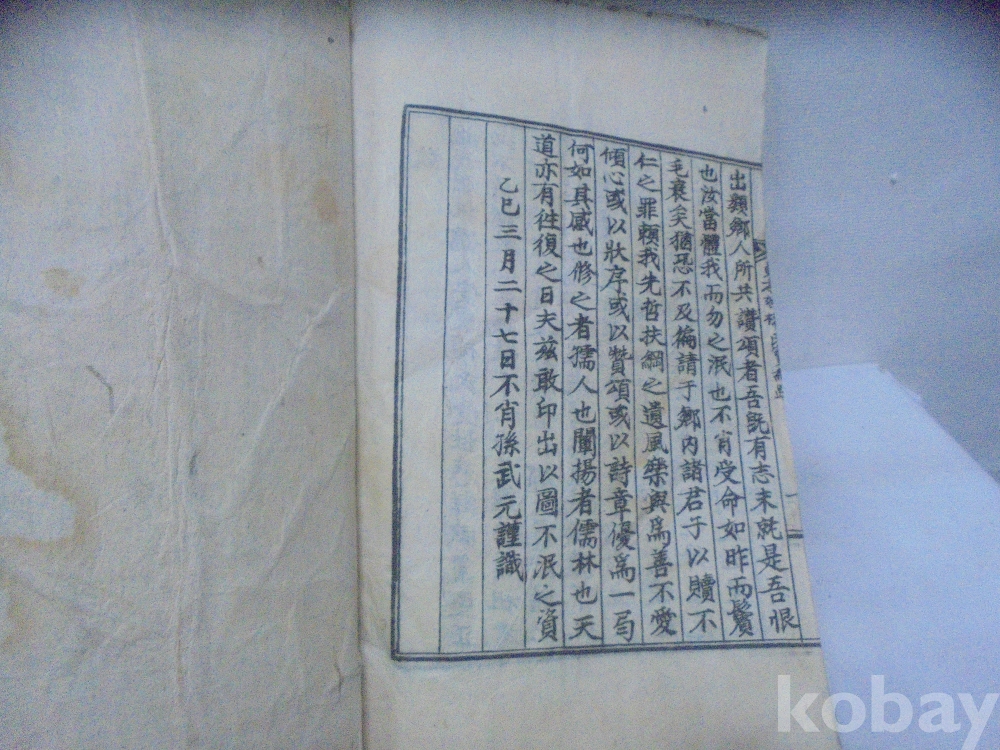 出類鄉人所共讚頌者吾旣有志未就是吾恨
也汝當體我而勿之泯也不肖受命如昨而鬢
毛衰矣猶恐不及徧請于鄉內諸君子以贖不
仁之罪賴我先哲扶綱之遺風樂與爲善不愛
傾心或以狀序或以贊頌或以詩章優爲一局
何如其感也修之者孺人也闡揚者儒林也天
道亦有往復之日夫玆敢印出以圖不泯之資
乙巳三月二十七日不肖孫武元謹識
kobay